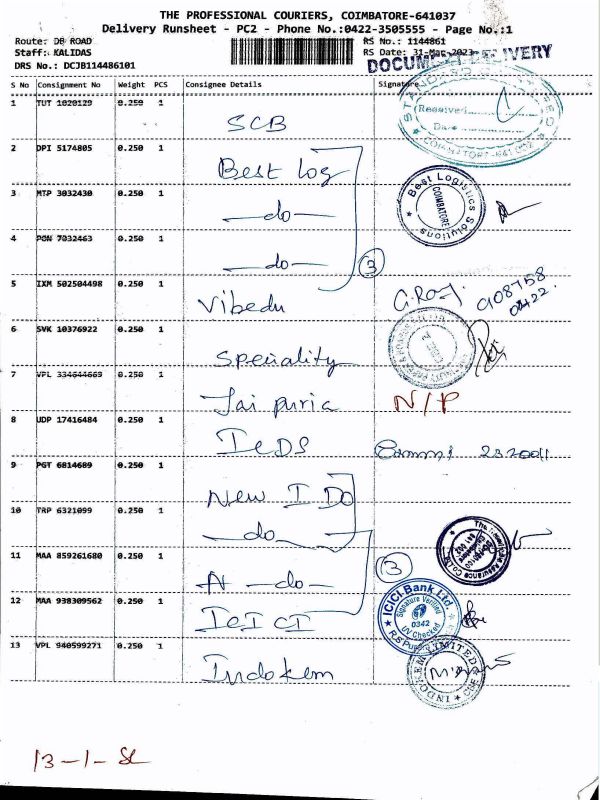 THE PROFESSIONAL COURIERS, COIMBATORE-641037
Delivery Runsheet - PC2 - Phone No.:0422-3505555 - Page No.:1
Route: DB ROAD
RS No.: 1144861
Staff: KALIDAS
RS Date: 31-Mar-2023
DRS No.: DCJB114486101
DOCUMENT DELIVERY
S No Consignment No Weight PCS Consignee Details Signature
1 TUT 1020129 0.250 1 SCB
Received
Date
COIMBATORE-641
2 DPI 5174805 0.250 1 Best log
Best Logistics Solutions
COIMBATORE
3 MTP 3032430 0.250 1 -do-
4 PON 7032463 0.250 1 -do-
3
5 IXM 502504498 0.250 1 Vibedu
908758
6 SVK 10376922 0.250 1 Speciality
7 VPL 334644669 0.250 1 Jai puria N/P
8 UDP 17416484 0.250 1 IeDS
9 PGT 6814689 0.250 1 New I Do
10 TRP 6321099 0.250 1 -do-
11 MAA 859261680 0.250 1 N -do-
3
12 MAA 938309562 0.250 1 IeICI
ICICI Bank Ltd.
Signature Verified
0342
UV Checked
13 VPL 940599271 0.250 1 Indokem
13-1-SL